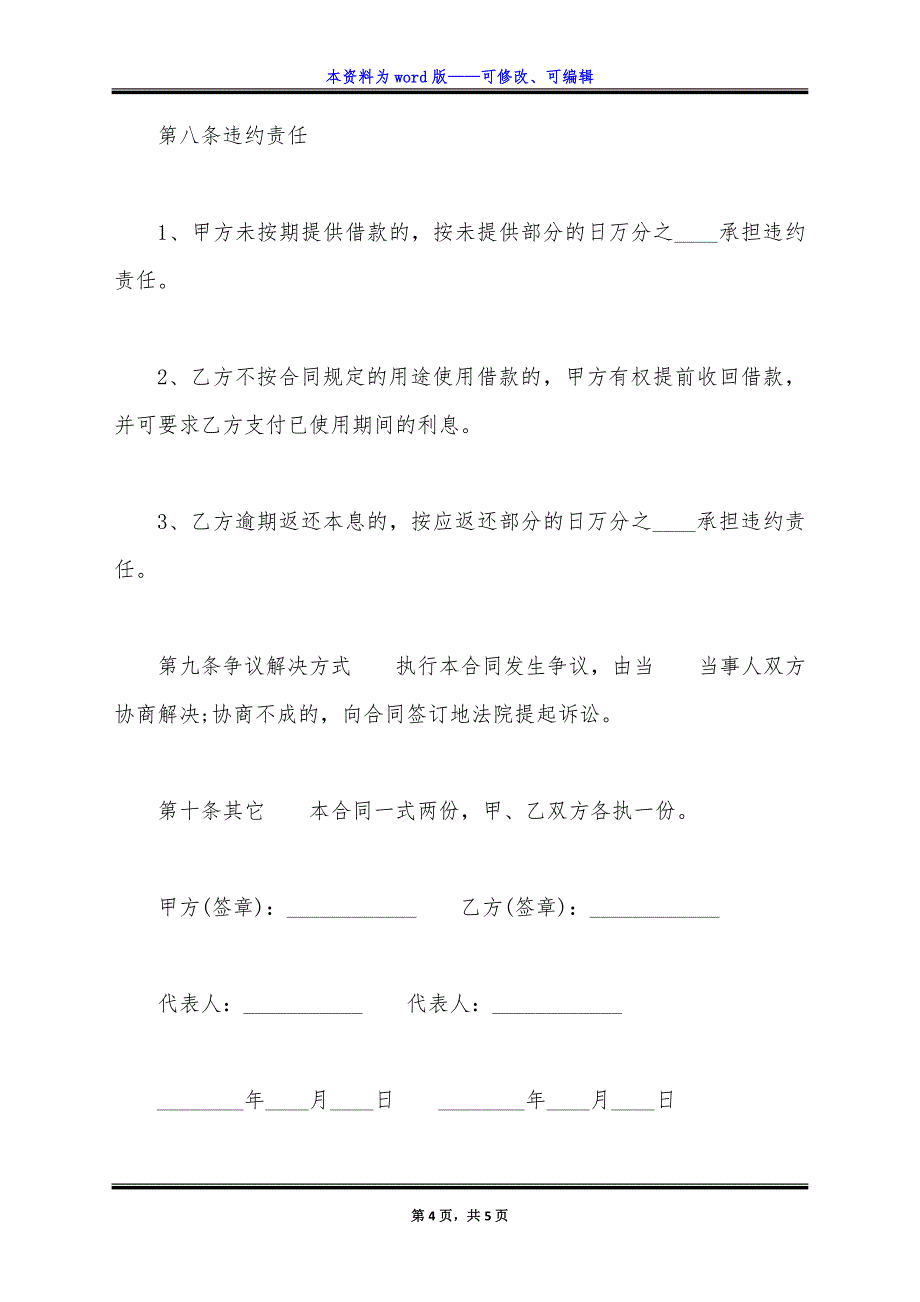 本资料为 word 版——可修改、可编辑
第八条违约责任
1、甲方未按期提供借款的，按未提供部分的日万分之____承担违约
责任。
2、乙方不按合同规定的用途使用借款的，甲方有权提前收回借款，
并可要求乙方支付已使用期间的利息。
3、乙方逾期返还本息的，按应返还部分的日万分之____承担违约责
任。
第九条争议解决方式　　执行本合同发生争议，由当　　当事人双方
协商解决;协商不成的，向合同签订地法院提起诉讼。
第十条其它　　本合同一式两份，甲、乙双方各执一份。
甲方(签章)：____________　　乙方(签章)：____________
代表人：___________　　代表人：____________
________年____月____日　　________年____月____日
第 4 页，共 5 页